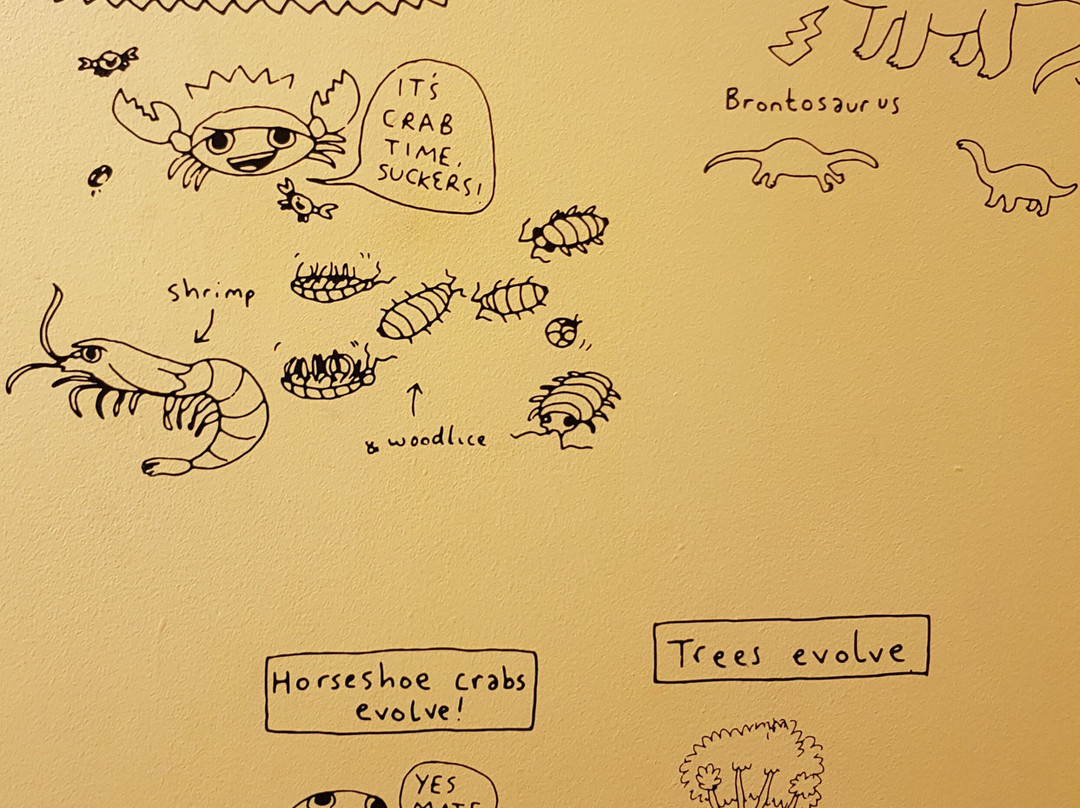 IT'S
CRAB
TIME,
SUCKERS!
Brontosaurus
shrimp
& woodlice
Horseshoe crabs
evolve!
Trees evolve
YES
MATE